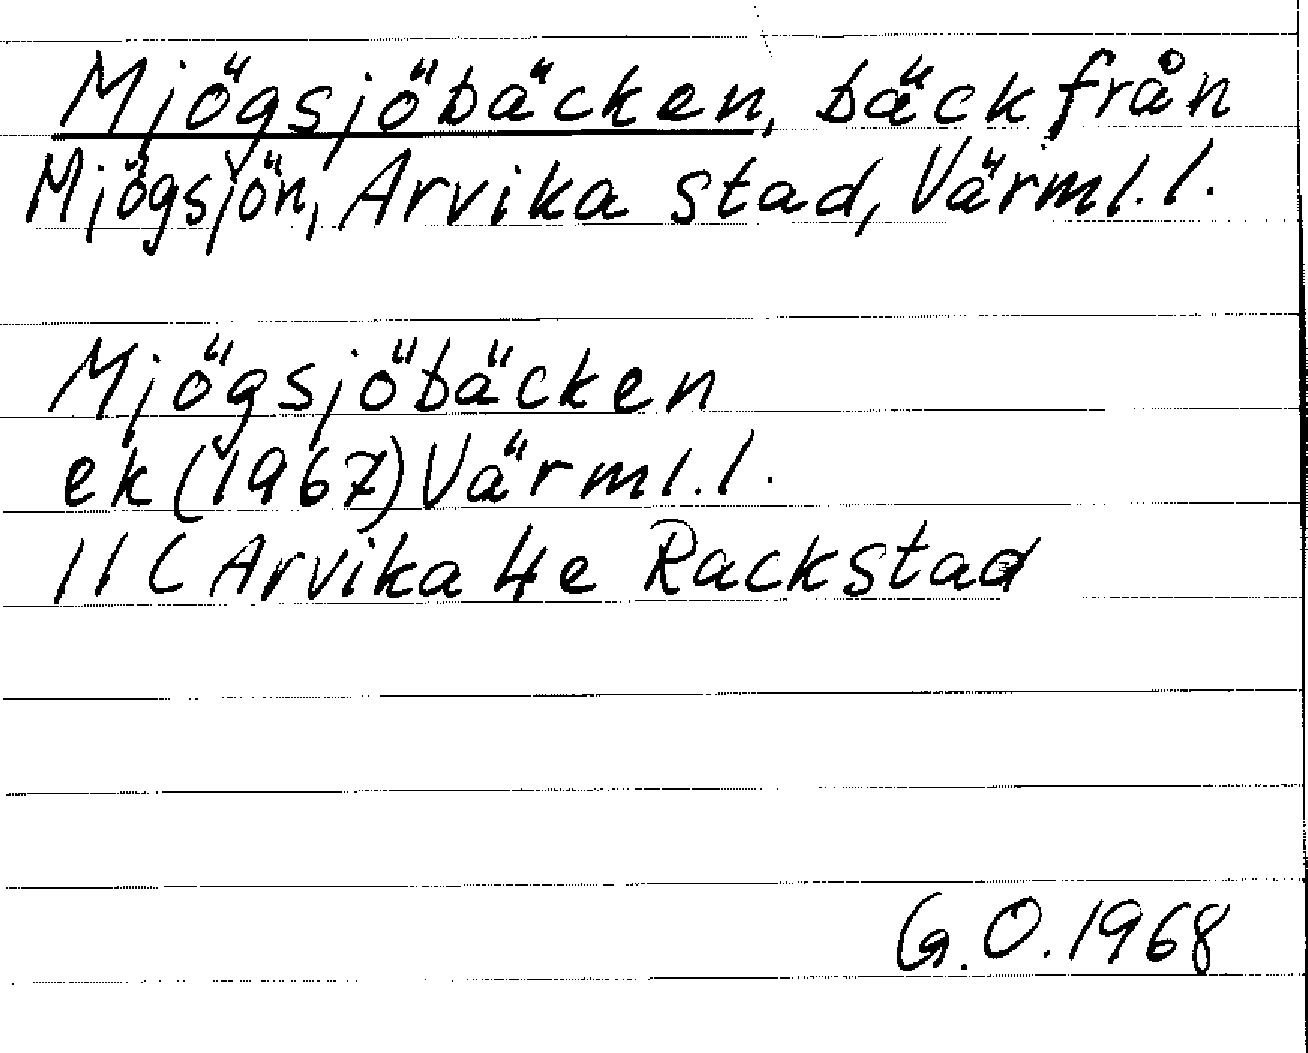 Mjögsjöbäcken, bäck från
Mjögsjön, Arvika stad, Värml.l.
Mjögsjöbäcken
ek (1967) Värml.l.
11C Arvika 4e Rackstad
G.O. 1968